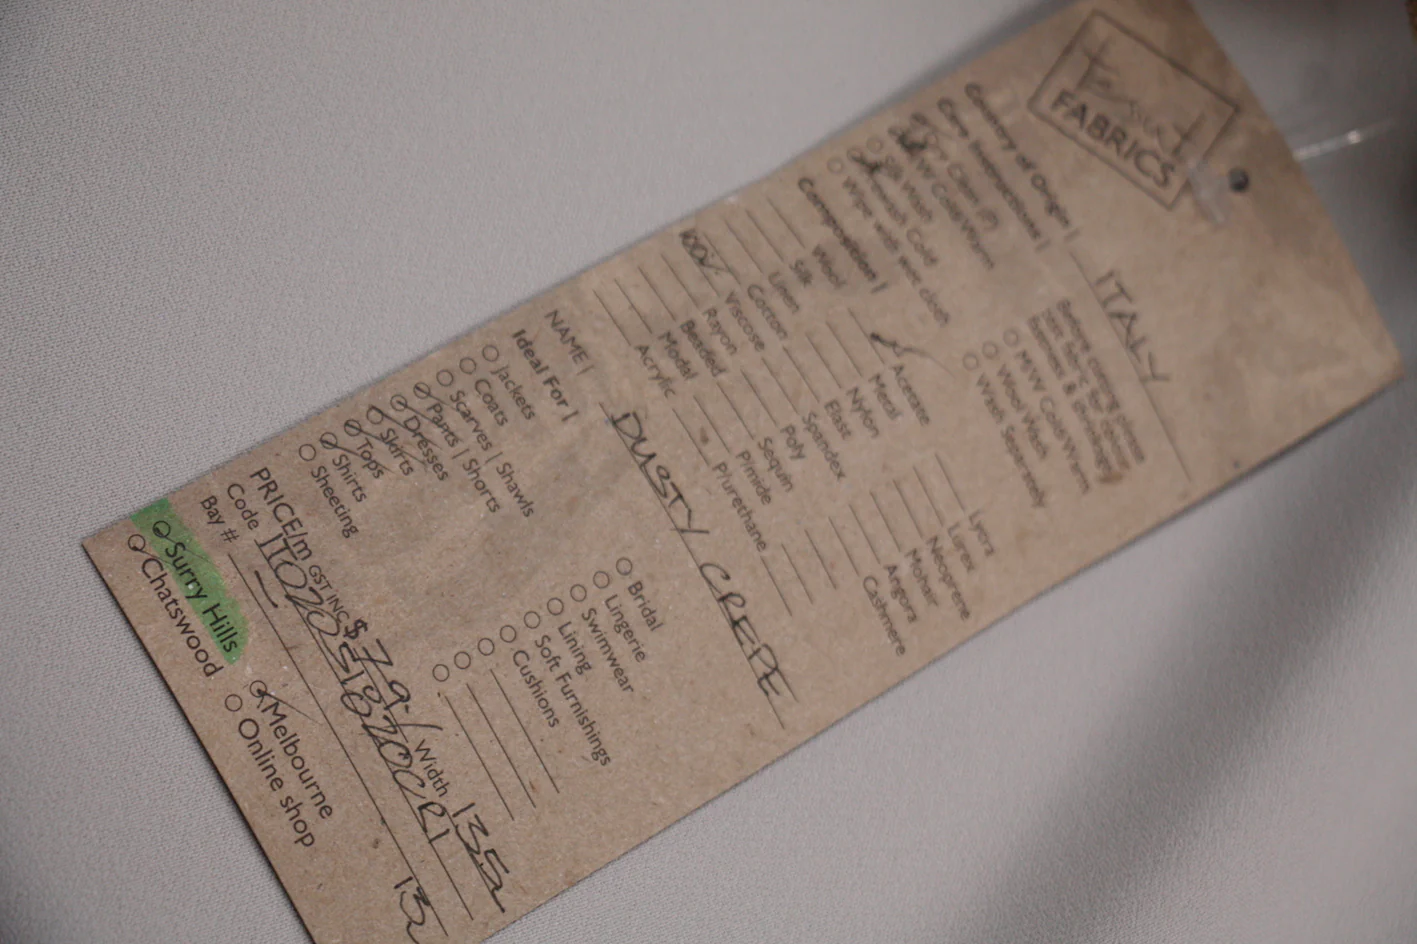 FABRICS
Country of Origin | ITALY
Care Instructions |
Silk Wash
Wipe with wet cloth
Before cutting please
M/W Cold/Warm
Wool Wash
Wash Separately
Composition |
Wool
Silk
Linen
Cotton
100% Viscose
Rayon
Beaded
Modal
Acrylic
Acetate
Metal
Nylon
Elast
Spandex
Poly
Sequin
Pimide
P/urethane
Lycra
Lurex
Neoprene
Mohair
Angora
Cashmere
NAME | DUSTY CREPE
Ideal For |
Jackets
Coats
Scarves | Shawls
Pants | Shorts
Dresses
Skirts
Tops
Shirts
Sheeting
Bridal
Lingerie
Swimwear
Lining
Soft Furnishings
Cushions
PRICE/m GST INC $ 79.- Width 135
Code
Bay #
Surry Hills
Chatswood
Melbourne
Online shop